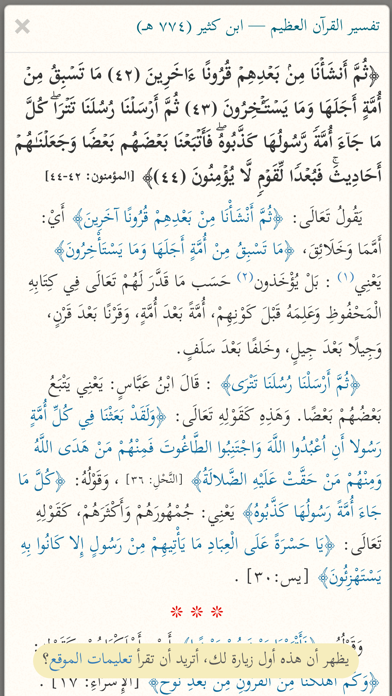 تفسير القرآن العظيم — ابن كثير (٧٧٤ هـ)
﴿ثُمَّ أَنشَأْنَا مِنۢ بَعْدِهِمْ قُرُونًا ءَاخَرِينَ (٤٢) مَا تَسْبِقُ مِنْ
أُمَّةٍ أَجَلَهَا وَمَا يَسْتَـْٔخِرُونَ (٤٣) ثُمَّ أَرْسَلْنَا رُسُلَنَا تَتْرَاۖ كُلَّ
مَا جَاۤءَ أُمَّةࣰ رَّسُولُهَا كَذَّبُوهُۖ فَأَتْبَعْنَا بَعْضَهُم بَعْضࣰا وَجَعَلْنَـٰهُمْ
أَحَادِيثَۚ فَبُعْدࣰا لِّقَوْمࣲ لَّا يُؤْمِنُونَ (٤٤)﴾ [المؤمنون: ٤٢-٤٤]
يَقُولُ تَعَالَى: ﴿ثُمَّ أَنْشَأْنَا مِنْ بَعْدِهِمْ قُرُونًا آخَرِينَ﴾ أَيْ:
أُمَمًا وَخَلَائِقَ، ﴿مَا تَسْبِقُ مِنْ أُمَّةٍ أَجَلَهَا وَمَا يَسْتَأْخِرُونَ﴾
يَعْنِي(١) : بَلْ يُؤْخَذون(٢) حَسَب مَا قَدَّرَ لَهُمْ تَعَالَى فِي كِتَابِهِ
الْمَحْفُوظِ وَعَلِمَهُ قَبْلَ كَوْنِهِمْ، أُمَّةً بَعْدَ أُمَّةٍ، وَقَرْنًا بَعْدَ قَرْنٍ،
وَجِيلًا بَعْدَ جِيلٍ، وخلفًا بَعْدَ سَلَفٍ.
﴿ثُمَّ أَرْسَلْنَا رُسُلَنَا تَتْرَى﴾ : قَالَ ابْنُ عَبَّاسٍ: يَعْنِي يَتْبَعُ
بَعْضُهُمْ بَعْضًا. وَهَذِهِ كَقَوْلِهِ تَعَالَى: ﴿وَلَقَدْ بَعَثْنَا فِي كُلِّ أُمَّةٍ
رَسُولا أَنِ اُعْبُدُوا اللَّهَ وَاجْتَنِبُوا الطَّاغُوتَ فَمِنْهُمْ مَنْ هَدَى اللَّهُ
وَمِنْهُمْ مَنْ حَقَّتْ عَلَيْهِ الضَّلالَةُ﴾ [النَّحْلِ: ٣٦] ، وَقَوْلُهُ: ﴿كُلَّ مَا
جَاءَ أُمَّةً رَسُولُهَا كَذَّبُوهُ﴾ يَعْنِي: جُمْهُورَهُمْ وَأَكْثَرَهُمْ، كَقَوْلِهِ
تَعَالَى: ﴿يَا حَسْرَةً عَلَى الْعِبَادِ مَا يَأْتِيهِمْ مِنْ رَسُولٍ إِلا كَانُوا بِهِ
يَسْتَهْزِئُونَ﴾ [يس:٣٠] .
يظهر أن هذه أول زيارة لك، أتريد أن تقرأ تعليمات الموقع؟
﴿وَكَمْ أَهْلَكْنَا مِنَ الْقُرُونِ مِنْ بَعْدِ نُوحٍ﴾ [الْإِسْرَاءِ: ١٧] .